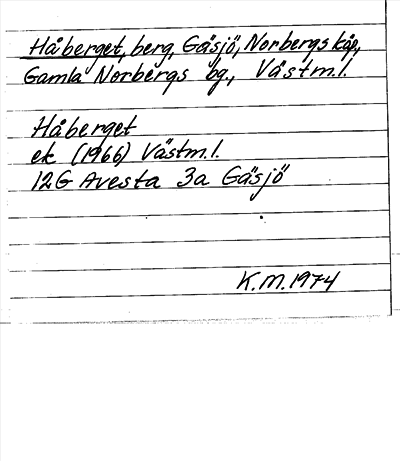 Håberget, berg, Gäsjö, Norbergs köp,
Gamla Norbergs bg., Västm.l.
Håberget
ek (1966) Västm.l.
12G Avesta 3a Gäsjö
K.M. 1974